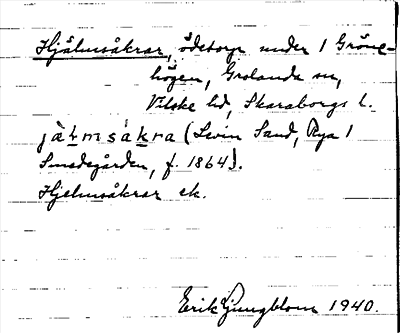 Hjälmsåkrar, ödetorp under 1 Gröne-
högen, Grolanda sn,
Vilske hd, Skaraborgs l.
jä̀ɫmsákra (Levin Sand, Rya 1
Smedegården, f. 1864).
Hjelmsåkrar ek.
Erik Ljungblom 1940.